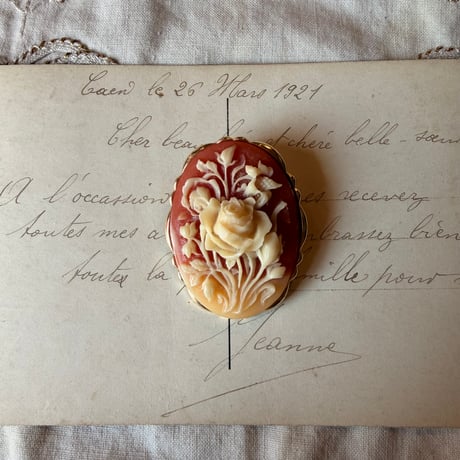 Caen le 26 Mars 1921
Cher beau et chéré belle-soeur
A l'occasion recevez
toutes mes embrassez bien
toutes la famille pour
Jeanne